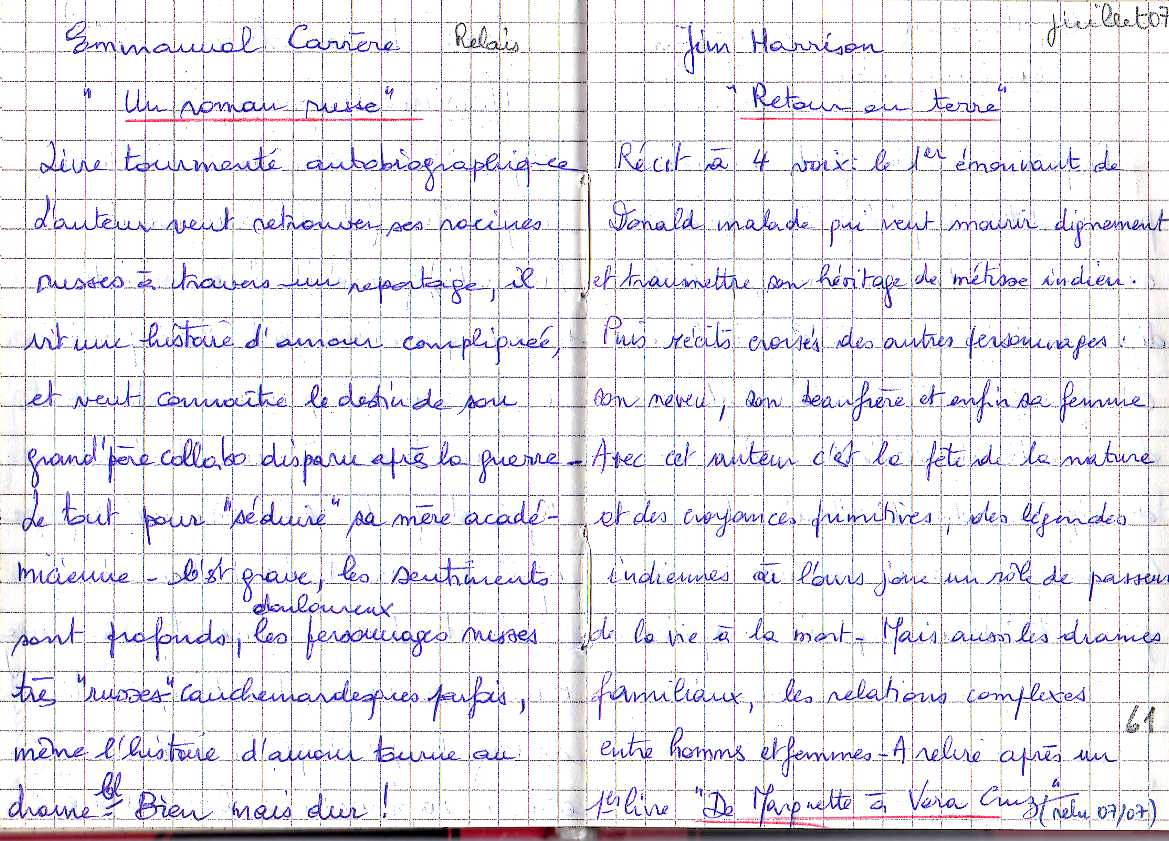 Emmanuel Carrère Relais
"Un roman russe"
Livre tourmenté autobiographique
L'auteur veut retrouver ses racines
russes à travers un reportage, il
vit une histoire d'amour compliquée,
et veut connaître le destin de son
grand'père collabo disparu après la guerre -
Le tout pour "séduire" sa mère acadé-
micienne - C'est grave, les sentiments
douloureux
sont profonds, les personnages russes
très "russes" cauchemardesques parfois,
même l'histoire d'amour tourne au
drame - Bien mais dur !
juillet 07
Jim Harrison
"Retour en terre"
Récit à 4 voix : le 1er émouvant de
Donald malade qui veut mourir dignement
et transmettre son héritage de métisse indien.
Puis récits croisés des autres personnages :
son neveu, son beaufrère et enfin sa femme
Avec cet auteur c'est la fête de la nature
et des croyances primitives, des légendes
indiennes où l'ours joue un rôle de passeur
de la vie à la mort - Mais aussi les drames
familiaux, les relations complexes
61
entre homms et femmes - A relire après un
1er livre "De Marquette à Vera Cruz" (relu 07/07)